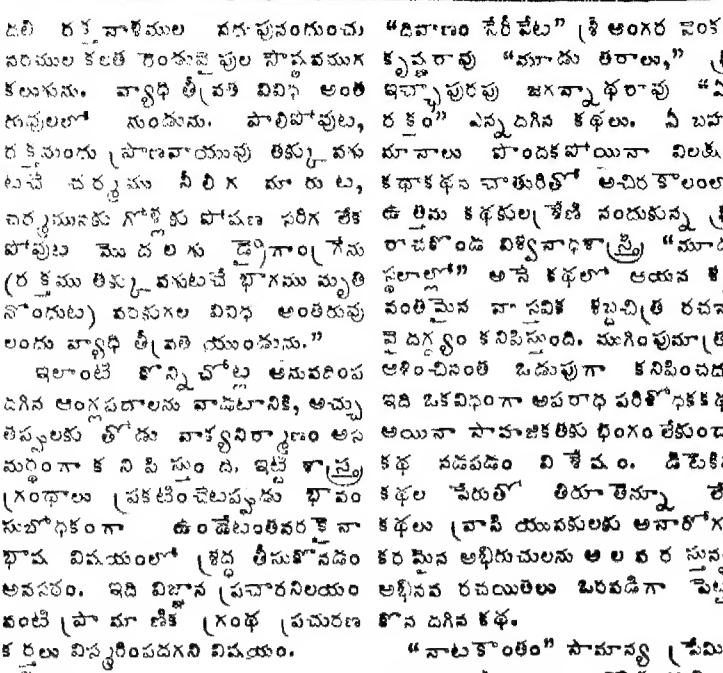 దలి రక్తనాళముల వడపునందుంచు
నరముల కలత రెండువైపుల సౌష్ఠవముగ
కలుగును. వ్యాధి తీవ్రతి వివిధ అంత
రువులలో నుండును. పాలిపోవుట,
రక్తమందు ప్రాణవాయువు తక్కువగు
టచే చర్మము నీలిగ మారుట,
చర్మమునకు గోళ్లకు పోషణ సరిగ లేక
పోవుట మొదలగు డ్రైగాంగ్రేను
(రక్తము తక్కువగుటచే భాగము మృతి
నొందుట) వరకుగల వివిధ అంతరువు
లందు వ్యాధి తీవ్రతి యుండును.”
ఇలాంటి కొన్నిచోట్ల అనువదింప
దగిన ఆంగ్లపదాలను వాడటానికి, అచ్చు
తప్పులకు తోడు వాక్యనిర్మాణం అస
మర్థంగా కనిపిస్తుంది. ఇట్టి శాస్త్ర
గ్రంథాలు ప్రకటించేటప్పుడు భావం
సుబోధకంగా ఉండేటంతవరకైనా
భాష విషయంలో శ్రద్ధ తీసుకొనడం
అవసరం. ఇది విజ్ఞాన ప్రచారనిలయం
వంటి ప్రామాణిక గ్రంథ ప్రచురణ
కర్తలు విస్మరింపదగని విషయం.
“దివాణం సేరీవేట” (శ్రీ అంగర వెంక
కృష్ణరావు “మూడు తరాలు,”
ఇచ్ఛాపురపు జగన్నాథరావు
రక్తం” ఎన్నదగిన కథలు. నీ బహు
మానాలు పొందకపోయినా విలకు
కథాకథన చాతురితో అచిరకాలంలో
ఉత్తమ కథకుల శ్రేణి నందుకున్న
రాచకొండ విశ్వనాథశాస్త్రి “మూడు
స్థలాల్లో” అనే కథలో ఆయన శ
వంతమైన వాస్తవిక శబ్దచిత్ర రచన
వైదగ్ధ్యం కనిపిస్తుంది. ముగింపుమాత్ర
ఆశించినంత ఒడుపుగా కనిపించదు
ఇది ఒకవిధంగా అపరాధ పరిశోధకకథ
అయినా సామాజికతకు భంగం లేకుండా
కథ నడపడం విశేషం. డిటెక్టి
కథల పేరుతో తిరూతెన్నూ లే
కథలు వ్రాసి యువకులకు అనారోగ్
కరమైన అభిరుచులను అలవరస్తున్న
అభినవ రచయితలు ఒరవడిగా పెట్టు
కొనదగిన కథ.
“నాటకాంతం” సామాన్య ప్రేమి